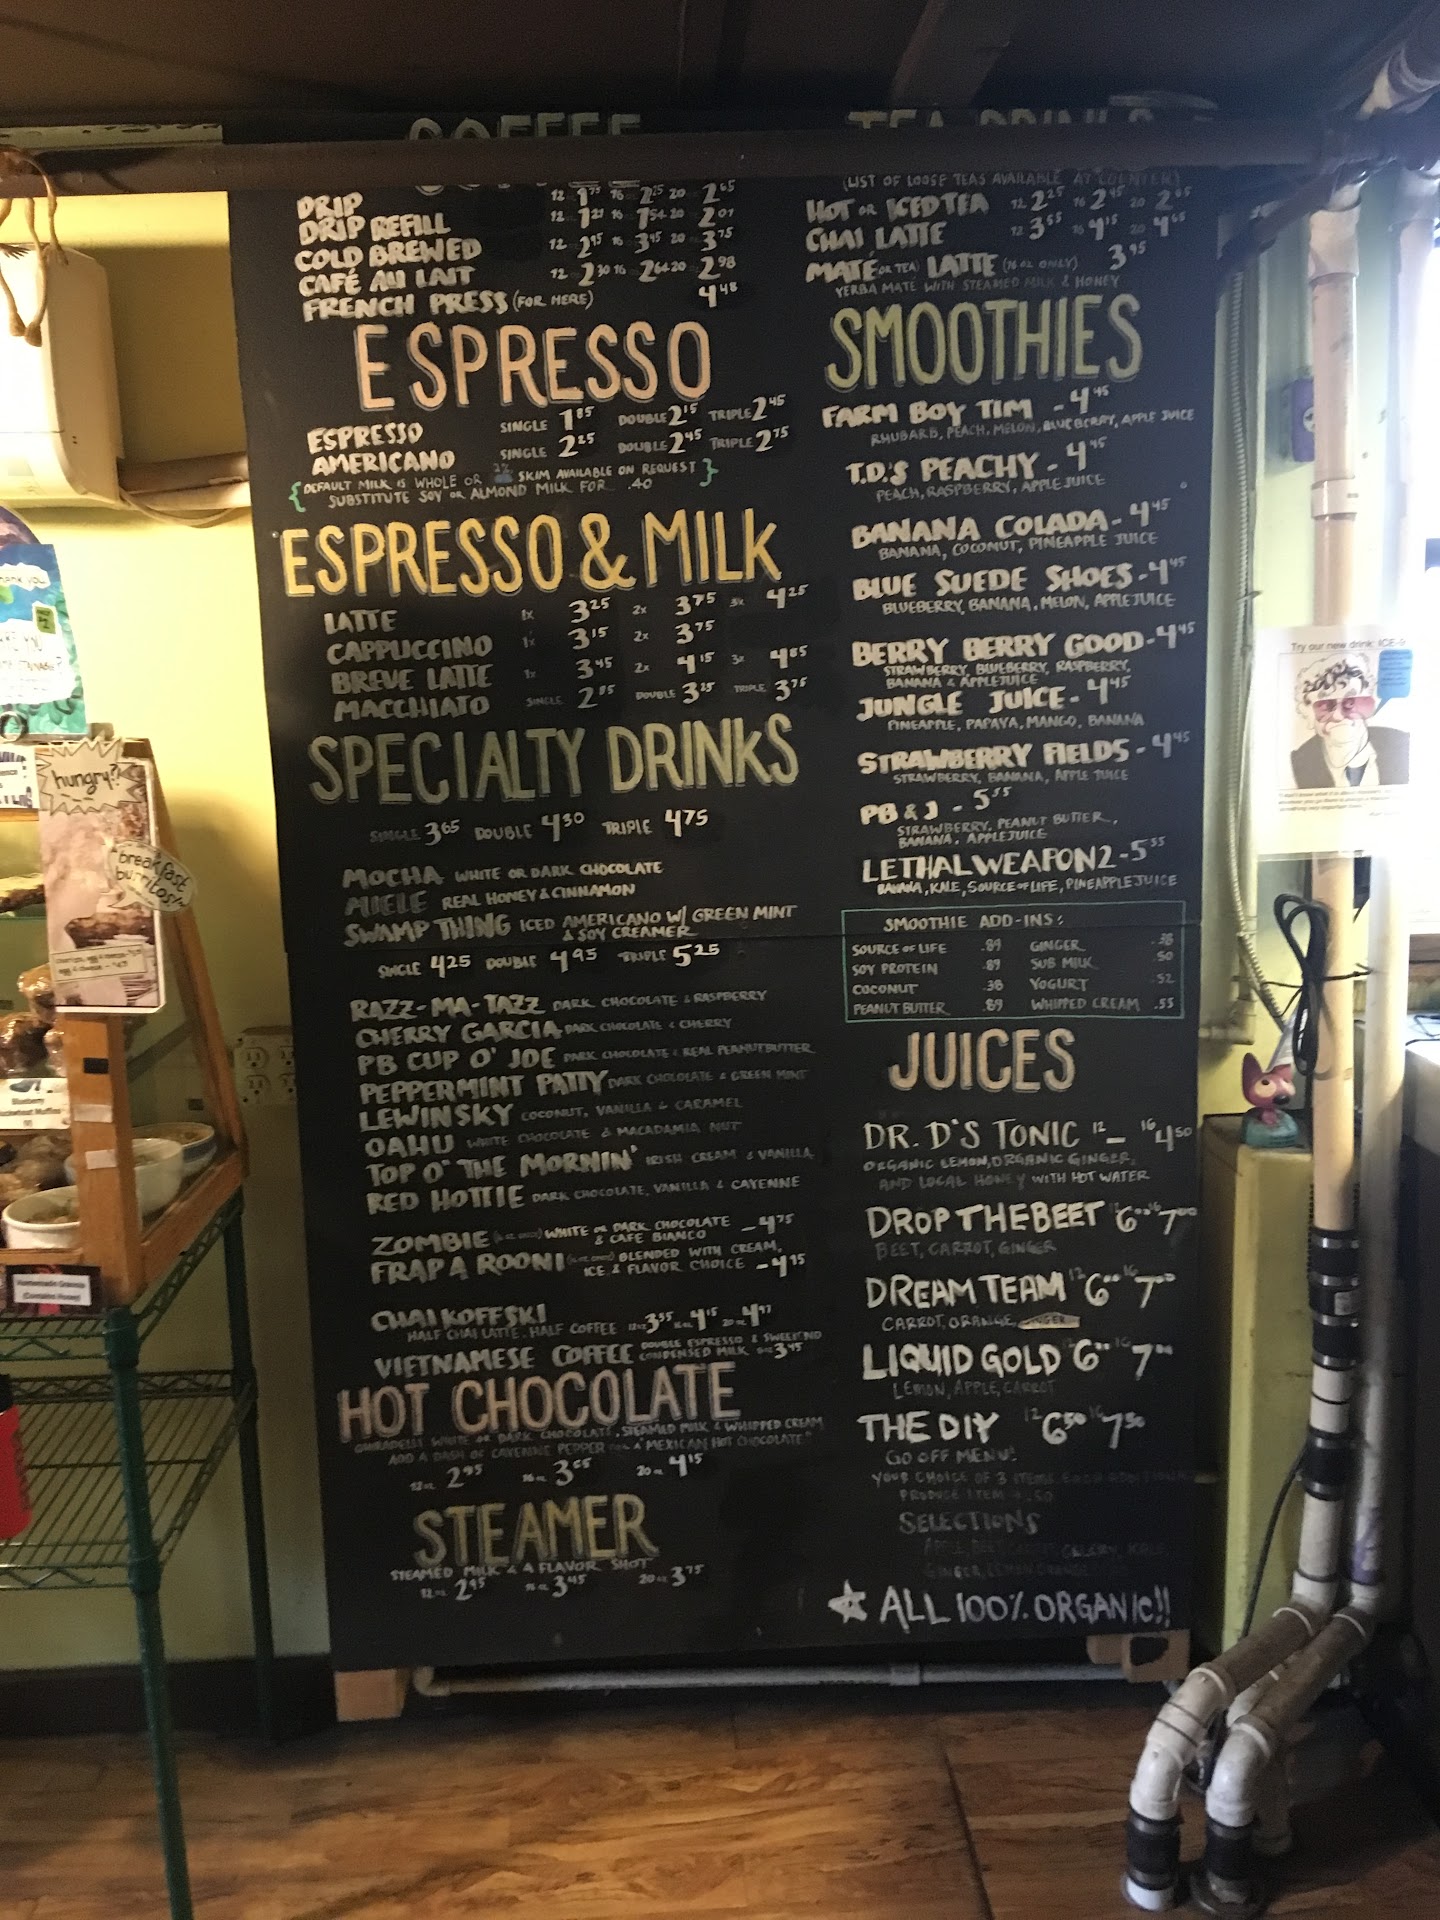 COFFEE
DRIP 12 1.75 16 2.25 20 2.65
DRIP REFILL 12 1.21 16 1.54 20 2.01
COLD BREWED 12 2.95 16 3.45 20 3.75
CAFÉ AU LAIT 12 2.30 16 2.64 20 2.98
FRENCH PRESS (FOR HERE) 4.48
ESPRESSO
ESPRESSO SINGLE 1.85 DOUBLE 2.15 TRIPLE 2.45
AMERICANO SINGLE 2.25 DOUBLE 2.45 TRIPLE 2.75
{DEFAULT MILK IS WHOLE OR 2% SKIM AVAILABLE ON REQUEST}
SUBSTITUTE SOY OR ALMOND MILK FOR .40
ESPRESSO & MILK
LATTE 1x 3.25 2x 3.75 3x 4.25
CAPPUCCINO 1x 3.15 2x 3.75
BREVE LATTE 1x 3.45 2x 4.15 3x 4.85
MACCHIATO SINGLE 2.85 DOUBLE 3.25 TRIPLE 3.75
SPECIALTY DRINKS
SINGLE 3.65 DOUBLE 4.30 TRIPLE 4.75
MOCHA WHITE OR DARK CHOCOLATE
MIELE REAL HONEY & CINNAMON
SWAMP THING ICED AMERICANO W/ GREEN MINT
& SOY CREAMER
SINGLE 4.25 DOUBLE 4.95 TRIPLE 5.25
RAZZ-MA-TAZZ DARK CHOCOLATE & RASPBERRY
CHERRY GARCIA DARK CHOCOLATE & CHERRY
PB CUP O' JOE DARK CHOCOLATE & REAL PEANUT BUTTER
PEPPERMINT PATTY DARK CHOCOLATE & GREEN MINT
LEWINSKY COCONUT, VANILLA & CARAMEL
OAHU WHITE CHOCOLATE & MACADAMIA NUT
TOP O' THE MORNIN' IRISH CREAM & VANILLA
RED HOTTIE DARK CHOCOLATE, VANILLA & CAYENNE
ZOMBIE WHITE OR DARK CHOCOLATE - 4.75
& CAFE BIANCO
FRAP A ROONI BLENDED WITH CREAM,
ICE & FLAVOR CHOICE - 4.75
CHAI KOFFSKI
HALF CHAI LATTE, HALF COFFEE 12oz 3.55 16oz 4.15 20oz 4.97
VIETNAMESE COFFEE DOUBLE ESPRESSO & SWEETEND
CONDENSED MILK 3.45
HOT CHOCOLATE
GHIRADELLI WHITE OR DARK CHOCOLATE, STEAMED MILK & WHIPPED CREAM
ADD A DASH OF CAYENNE PEPPER FOR A "MEXICAN HOT CHOCOLATE"
12oz 2.95 16oz 3.65 20oz 4.15
STEAMER
STEAMED MILK & A FLAVOR SHOT
12oz 2.95 16oz 3.45 20oz 3.75
TEA DRINKS
(LIST OF LOOSE TEAS AVAILABLE AT COUNTER)
HOT OR ICED TEA 12 2.25 16 2.45 20 2.65
CHAI LATTE 12 3.55 16 4.15 20 4.65
MATÉ (OR TEA) LATTE (16 OZ ONLY) 3.95
YERBA MATE WITH STEAMED MILK & HONEY
SMOOTHIES
FARM BOY TIM - 4.45
RHUBARB, PEACH, MELON, BLUEBERRY, APPLE JUICE
T.D.'S PEACHY - 4.45
PEACH, RASPBERRY, APPLE JUICE
BANANA COLADA - 4.45
BANANA, COCONUT, PINEAPPLE JUICE
BLUE SUEDE SHOES - 4.45
BLUEBERRY, BANANA, MELON, APPLE JUICE
BERRY BERRY GOOD - 4.45
STRAWBERRY, BLUEBERRY, RASPBERRY,
BANANA & APPLE JUICE
JUNGLE JUICE - 4.45
PINEAPPLE, PAPAYA, MANGO, BANANA
STRAWBERRY FIELDS - 4.45
STRAWBERRY, BANANA, APPLE JUICE
PB & J - 5.55
STRAWBERRY, PEANUT BUTTER,
BANANA, APPLE JUICE
LETHAL WEAPON 2 - 5.55
BANANA, KALE, SOURCE OF LIFE, PINEAPPLE JUICE
SMOOTHIE ADD-INS:
SOURCE OF LIFE .89 GINGER .38
SOY PROTEIN .89 SUB MILK .50
COCONUT .38 YOGURT .52
PEANUT BUTTER .89 WHIPPED CREAM .55
JUICES
DR. D'S TONIC 12 - 16 4.50
ORGANIC LEMON, ORGANIC GINGER,
AND LOCAL HONEY WITH HOT WATER
DROP THE BEET 12 6.00 16 7.00
BEET, CARROT, GINGER
DREAM TEAM 12 6.00 16 7.00
CARROT, ORANGE,
LIQUID GOLD 12 6.00 16 7.00
LEMON, APPLE, CARROT
THE DIY 12 6.50 16 7.50
GO OFF MENU!
YOUR CHOICE OF 3 ITEMS. EACH ADDITIONAL
PRODUCE ITEM + .50
SELECTIONS
APPLE, BEET, CARROT, CELERY, KALE
GINGER, LEMON, ORANGE
ALL 100% ORGANIC!!
hungry?
breakfast
burritos!
Thank you
Homemade Granola
(Contains Honey)
Try our new drink: ICE-9